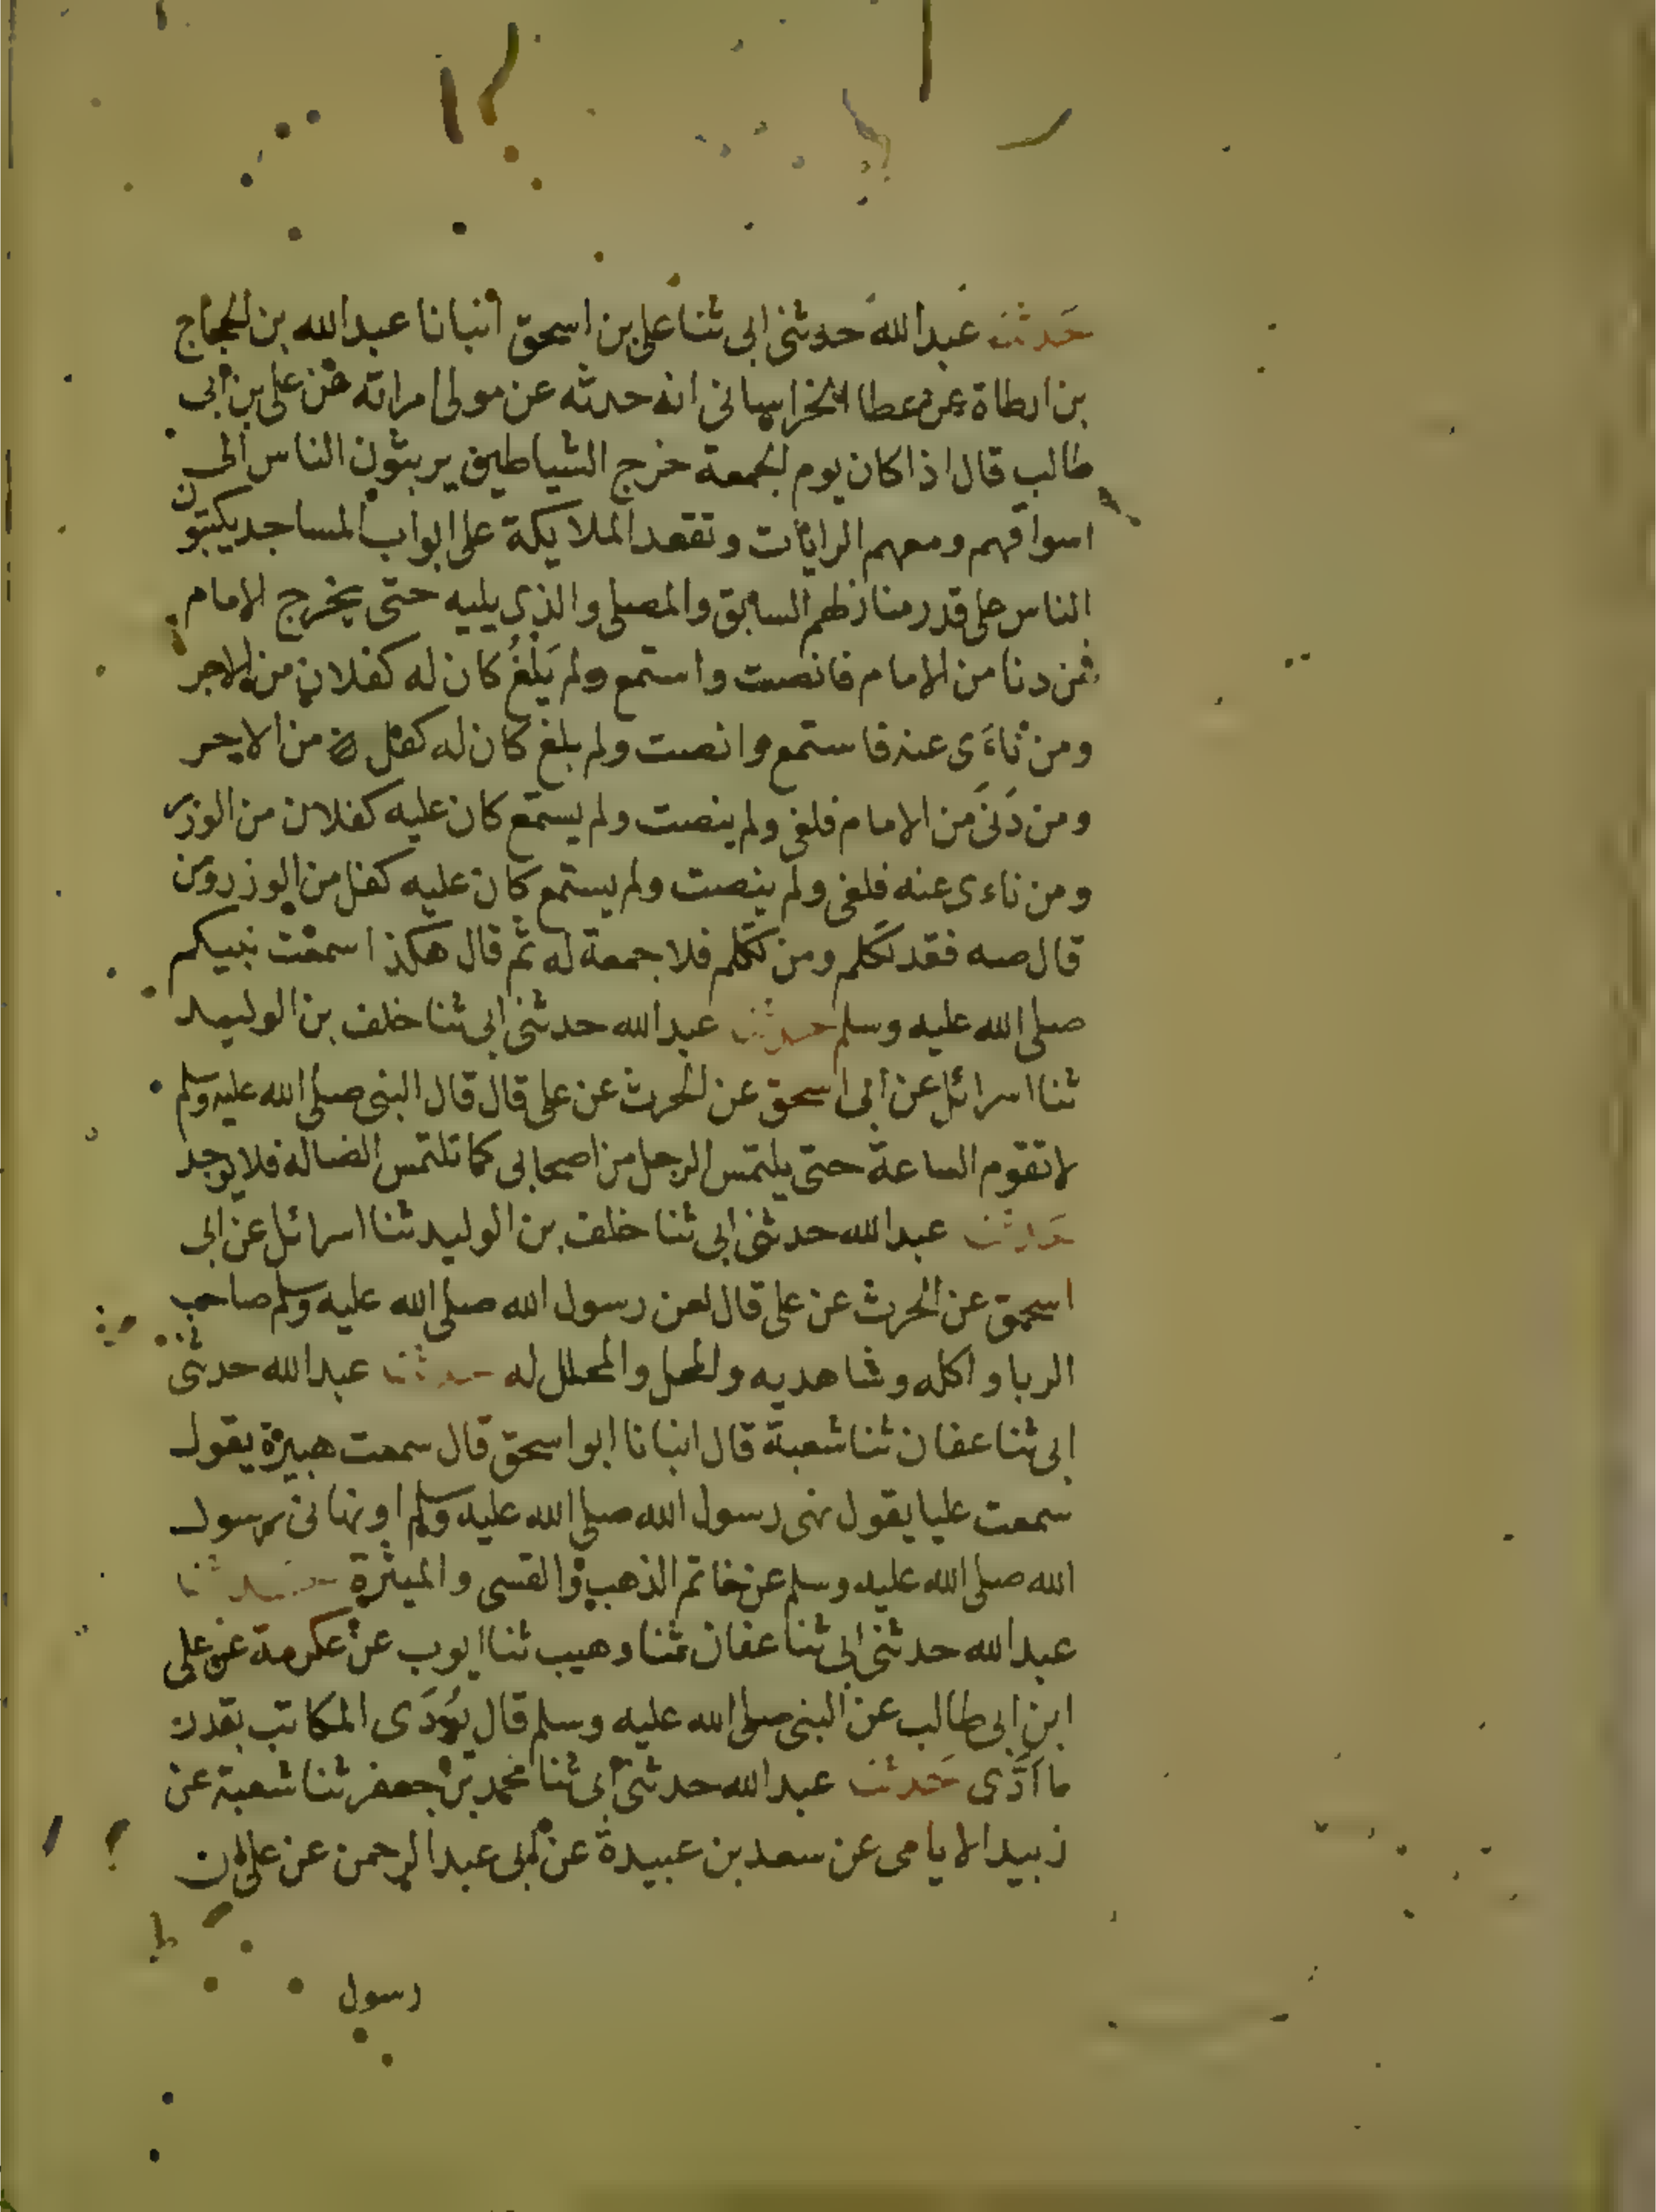 حدثنا عبد الله حدثنى ابى ثنا على بن اسحق انبانا عبد الله بن الحجاج
بن ارطاة عن عطا الخراسانى انه حدثه عن مولى امراته عن على بن ابى
طالب قال اذا كان يوم الجمعة خرج الشياطين يربثون الناس الى
اسواقهم ومعهم الرايات وتقعد الملايكة على ابواب المساجد يكتبون
الناس على قدر منازلهم السابق والمصلى والذى يليه حتى يخرج الامام
فمن دنا من الامام فانصت واستمع ولم يَلْغُ كان له كفلان من الاجر
ومن ناءَى عنه فاستمع وانصت ولم يلغ كان له كفل من الاجر
ومن دَنَى من الامام فلغى ولم ينصت ولم يستمع كان عليه كفلان من الوزر
ومن ناءى عنه فلغى ولم ينصت ولم يستمع كان عليه كفل من الوزر ومن
قال صه فقد تكلم ومن تكلم فلا جمعة له ثم قال هكذا سمعت نبيكم
صلى الله عليه وسلم حدثنا عبد الله حدثنى ابى ثنا خلف بن الوليد
ثنا اسرائل عن ابى اسحق عن الحرث عن على قال قال النبى صلى الله عليه وسلم
لا تقوم الساعة حتى يلتمس الرجل من اصحابى كما تلتمس الضالة فلا يوجد
حدثنا عبد الله حدثنى ابى ثنا خلف بن الوليد ثنا اسرائل عن ابى
اسحق عن الحرث عن على قال لعن رسول الله صلى الله عليه وسلم صاحب
الربا واكله وشاهديه والمحل والمحلل له حدثنا عبد الله حدثنى
ابى ثنا عفان ثنا شعبة قال انبانا ابو اسحق قال سمعت هبيرة يقول
سمعت عليا يقول نهى رسول الله صلى الله عليه وسلم او نهانى رسول
الله صلى الله عليه وسلم عن خاتم الذهب والقسى والميثرة حدثنا
عبد الله حدثنى ابى ثنا عفان ثنا وهيب ثنا ايوب عن عكرمة عن على
ابن ابى طالب عن النبى صلى الله عليه وسلم قال يُودَى المكاتب بقدر
ما اَدَّى حَدثنا عبد الله حدثنى ابى ثنا محمد بن جعفر ثنا شعبة عن
زبيد الايامى عن سعد بن عبيدة عن ابى عبد الرحمن عن على ان
رسول